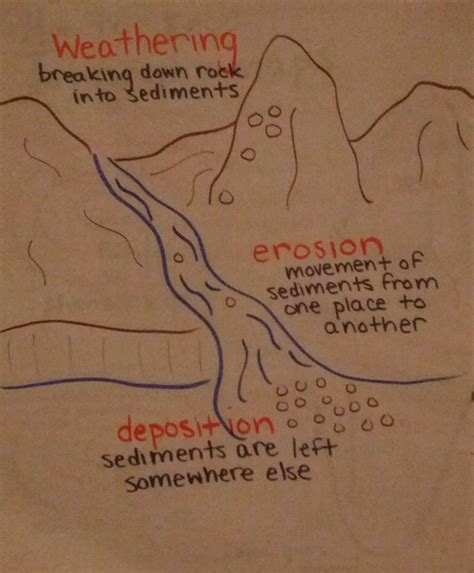 Weathering
breaking down rock
into sediments
erosion
movement of
sediments from
one place to
another
deposition
sediments are left
somewhere else